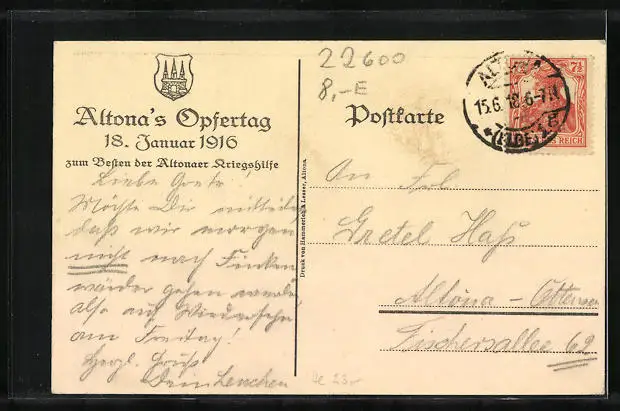 22600
8,-E
Altona's Opfertag
18. Januar 1916
zum Besten der Altonaer Kriegshilfe
Liebe Grete!
Möchte Dir mitteilen
daß wir morgen
nicht nach Finken
wärder gehen werde
also auf Wiedersehn
am Freitag!
Herzl. Gruß
Dein Lenchen
Druck von Hammerich & Lesser, Altona.
Postkarte
ALTONA
15.6.18.6-7N
*(ELBE)1g
7½
REICH
An Frl
Gretel Haß
Altona-Ottensen
Fischersallee 62